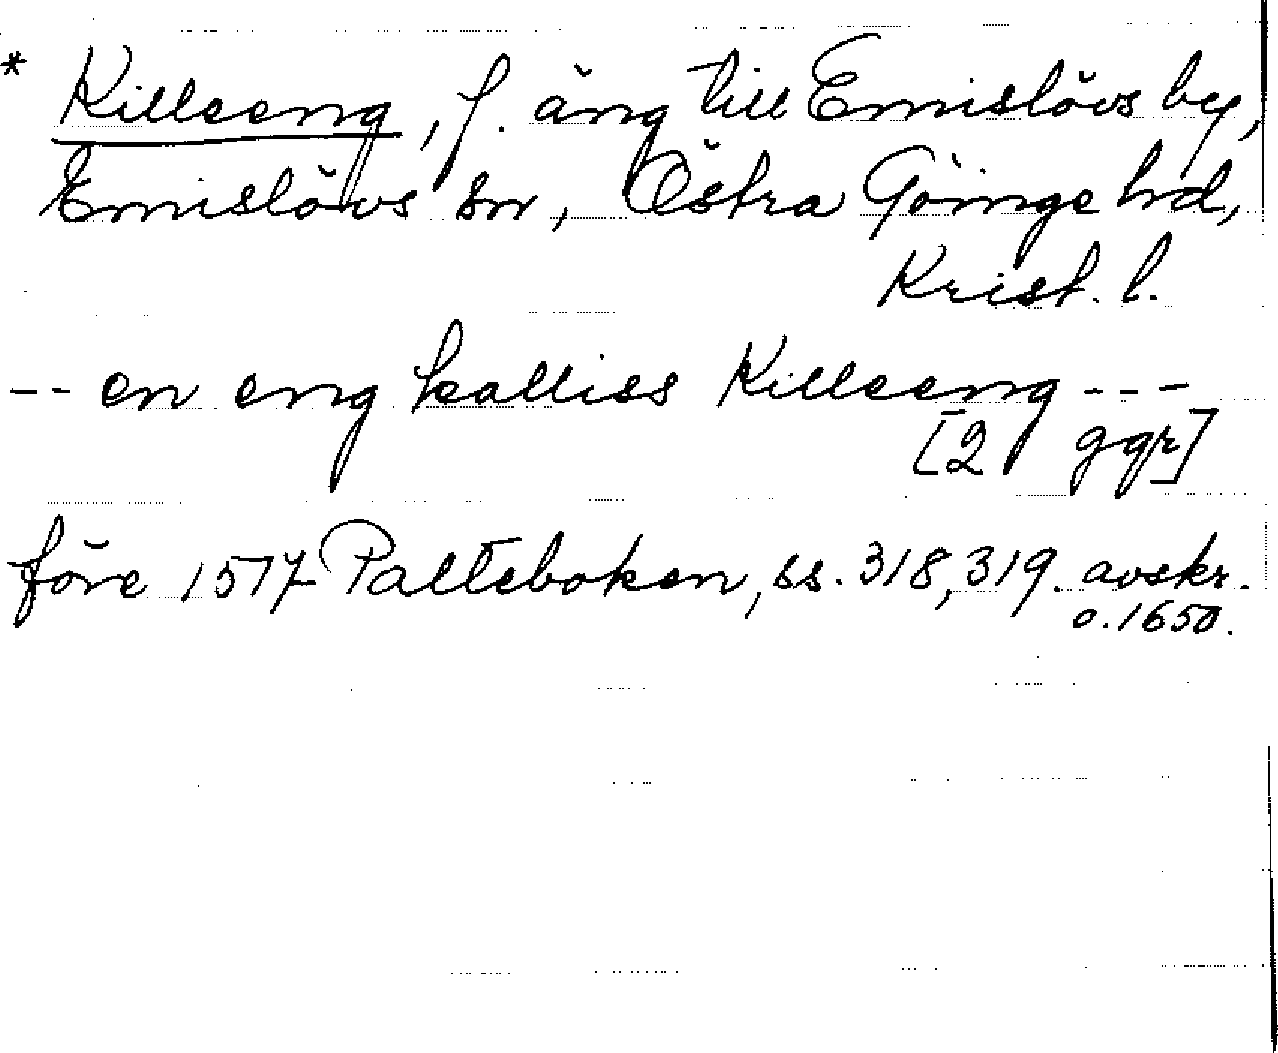 * Killeeng, f. äng till Emislövs by,
Emislövs sn, Östra Göinge hd,
Krist. l.
-- en eng kalliss Killeeng ---
[2 ggr]
före 1577 Palteboken, ss. 318, 319. avskr.
o. 1650.